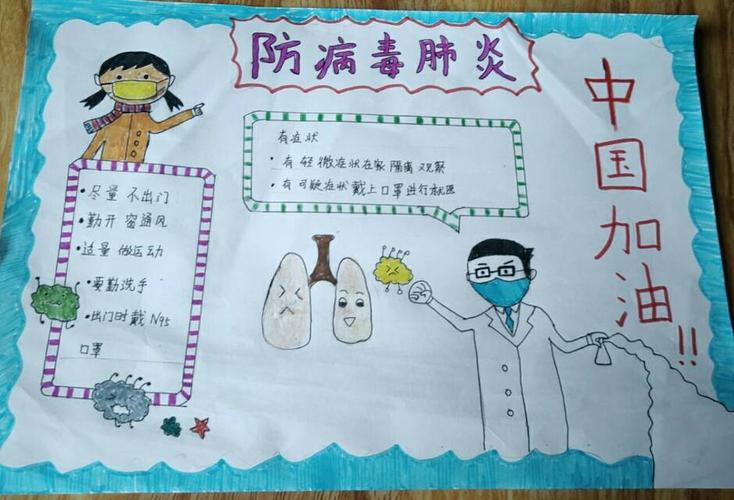 防病毒肺炎
中国加油!!
有症状
• 有轻微症状在家隔离观察
• 有可疑症状戴上口罩进行就医
• 尽量不出门
• 勤开窗通风
• 适量做运动
• 要勤洗手
• 出门时戴N95
口罩